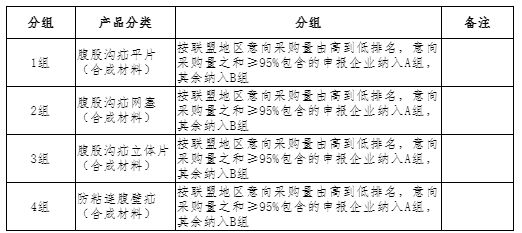 分组 产品分类 分组 备注
1组 腹股沟疝平片（合成材料） 按联盟地区意向采购量由高到低排名，意向
采购量之和≥95%包含的申报企业纳入A组，
其余纳入B组
2组 腹股沟疝网塞（合成材料） 按联盟地区意向采购量由高到低排名，意向
采购量之和≥95%包含的申报企业纳入A组，
其余纳入B组
3组 腹股沟疝立体片（合成材料） 按联盟地区意向采购量由高到低排名，意向
采购量之和≥95%包含的申报企业纳入A组，
其余纳入B组
4组 防粘连腹壁疝（合成材料） 按联盟地区意向采购量由高到低排名，意向
采购量之和≥95%包含的申报企业纳入A组，
其余纳入B组